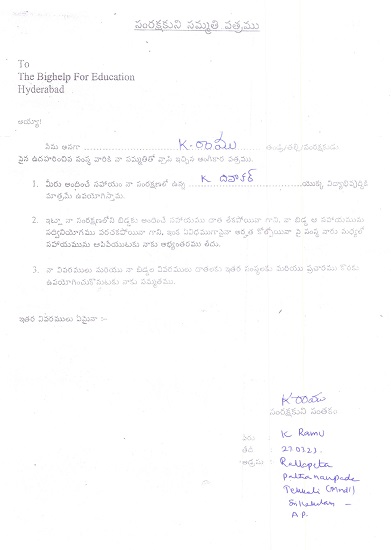 సంరక్షకుని సమ్మతి పత్రము
To
The Bighelp For Education
Hyderabad
అయ్యా!
నేను అనగా K. రాము తండ్రి/తల్లి/సంరక్షకుడు
పైన ఉదహరించిన సంస్థ వారికి నా సమ్మతితో వ్రాసి ఇచ్చిన అంగీకార పత్రము.
1. మీరు అందించే సహాయం నా సంరక్షణలో ఉన్న K దివాకర్ యొక్క విద్యాభివృద్ధికి
మాత్రమే ఉపయోగిస్తాను.
2. ఇట్లు నా సంరక్షణలోని బిడ్డకు అందించే సహాయము దాత లేకపోయినా గాని, నా బిడ్డ ఆ సహాయమును
సద్వినియోగము పరచకపోయినా గాని, ఇంక ఏవిధముగానైనా అర్హత కోల్పోయినా పై సంస్థ వారు మధ్యలో
సహాయమును ఆపివేయుటకు నాకు అభ్యంతరము లేదు.
3. నా వివరములు మరియు నా బిడ్డల వివరములు దాతలకు ఇతర సంస్థలకు మరియు ప్రచారము కొరకు
ఉపయోగించుకొనుటకు నాకు సమ్మతము.
ఇతర వివరములు ఏమైనా :-
K రాము
సంరక్షకుని సంతకం
పేరు : K Ramu
తేది :
అడ్రసు :
Tekkali (Mndl)
Srikakulam -
A.P.